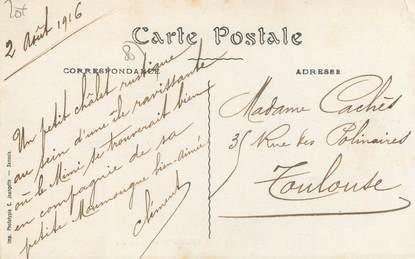 2 Août 1916
Carte Postale
CORRESPONDANCE
ADRESSE
Un petit châlet rustique
au sein d'une île ravissante
où le Mimi se trouverait bien
en compagnie de sa
petite Moumougue bien-aimée
Clément
Madame Cachés
35 Rue des Polinaires
Toulouse
Imp. Phototypie C. Jeangette - Sannois.